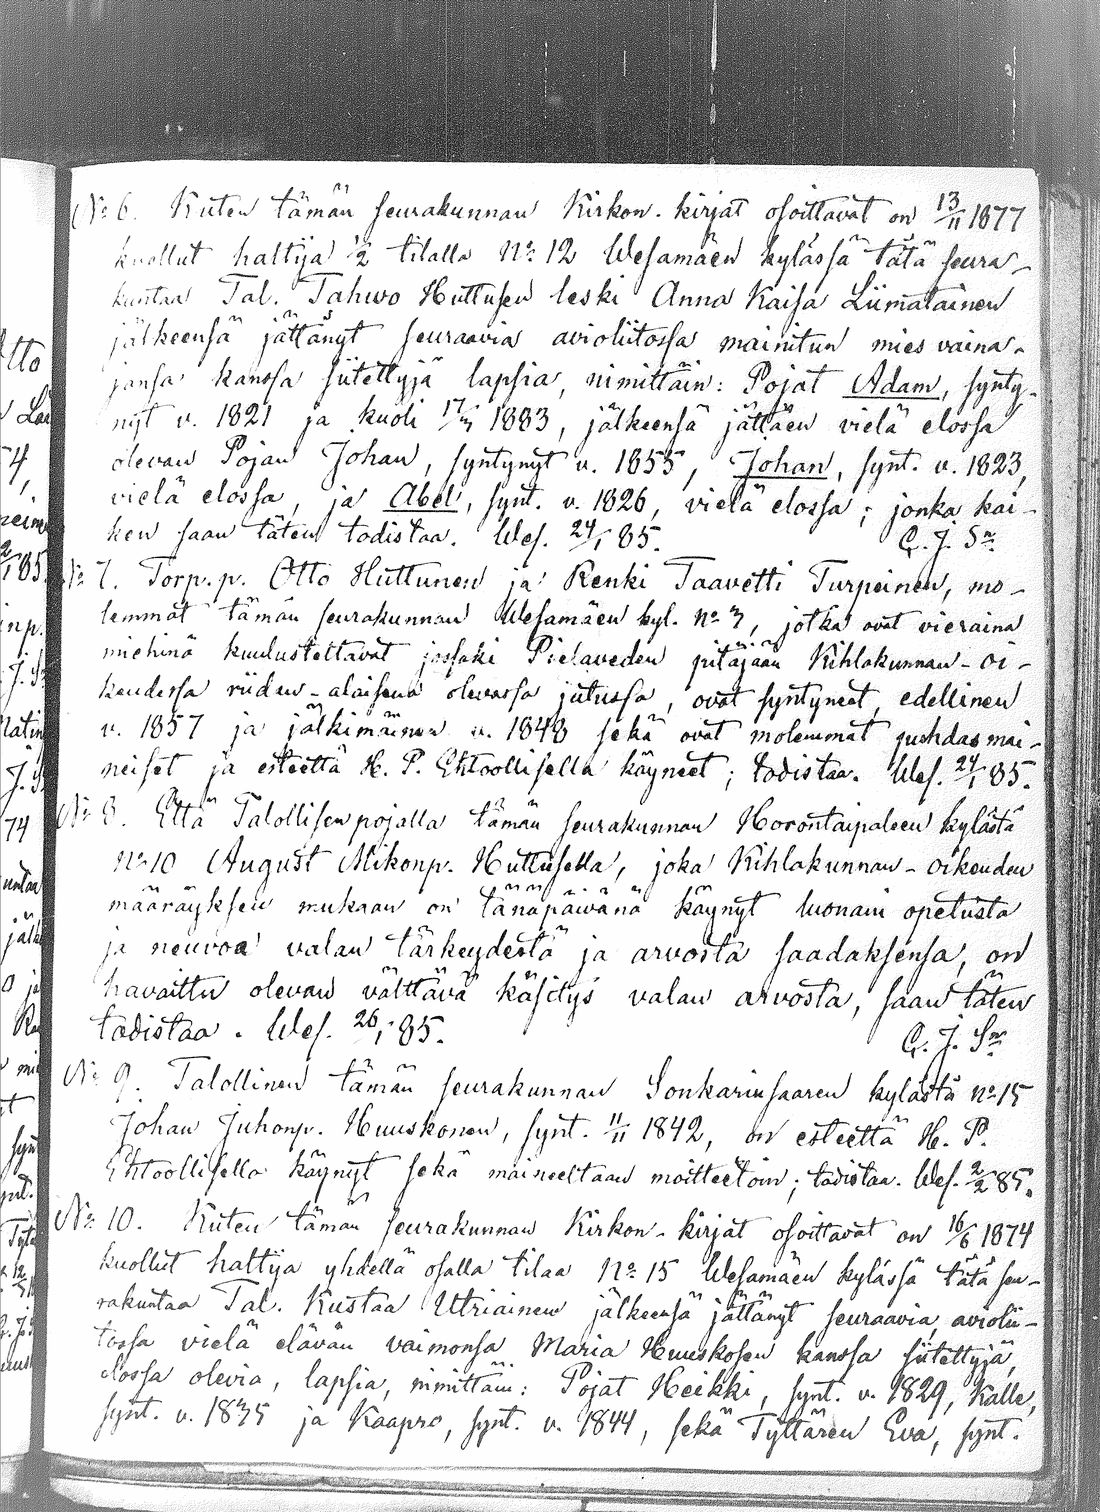 No 6. Kuten tämän seurakunnan Kirkon-kirjat osoittavat on 13/11 1877
kuollut haltija 1/2 tilalla No 12 Wesamäen kylässä tätä seura-
kuntaa Tal. Tahwo Huttusen leski Anna Kaisa Liimatainen
jälkeensä jättänyt seuraavia avioliitossa mainitun mies vaina-
jansa kanssa siitettyjä lapsia, nimittäin: Pojat Adam, synty-
nyt v. 1821 ja kuoli 1883, jälkeensä jättäen vielä elossa
olevan Pojan Johan, syntynyt v. 1855, Johan, synt. v. 1823,
vielä elossa, ja Abel, synt. v. 1826, vielä elossa; jonka kai-
ken saan täten todistaa. Wes. 24/1 85. C. J. Sn
No 7. Torp.p. Otto Huttunen ja Renki Taavetti Turpeinen, mo-
lemmat tämän seurakunnan Wesamäen kyl. No 7, jotka ovat vieraina
miehinä kuulusteltavat jossaki Pielaveden pitäjään Kihlakunnan-oi-
keudessa riidan-alaisena olevassa jutussa, ovat syntyneet, edellinen
v. 1857 ja jälkimäinen v. 1848 sekä ovat molemmat puhdas mai-
neiset ja esteettä H. P. Ehtoollisella käyneet; todistaa. Wes. 24/1 85.
No 8. Että Talollisen pojalla tämän seurakunnan Horontaipaleen kylästä
No 10 August Mikonp. Huttusella, joka Kihlakunnan-oikeuden
määräyksen mukaan on tänäpäivänä käynyt luonani opetusta
ja neuvoa valan tärkeydestä ja arvosta saadaksensa, on
havaittu olevan välttävä käsitys valan arvosta, saan täten
todistaa. Wes. 26/1 85. C. J. Sn
No 9. Talollinen tämän seurakunnan Sonkarinsaaren kylästä No 15
Johan Juhonp. Huuskonen, synt. 11/11 1842, on esteettä H. P.
Ehtoollisella käynyt sekä maineeltaan moitteetoin; todistaa. Wes. 2/2 85.
No 10. Kuten tämän seurakunnan Kirkon-kirjat osoittavat on 16/6 1874
kuollut haltija yhdellä osalla tilaa No 15 Wesamäen kylässä tätä seu-
rakuntaa Tal. Kustaa Utriainen jälkeensä jättänyt seuraavia, aviolii-
tossa vielä elävän vaimonsa Maria Huuskosen kanssa siitettyjä,
elossa olevia, lapsia, nimittäin: Pojat Heikki, synt. v. 1829, Kalle,
synt. v. 1835 ja Kaapro, synt. v. 1844, sekä Tyttären Eva, synt.